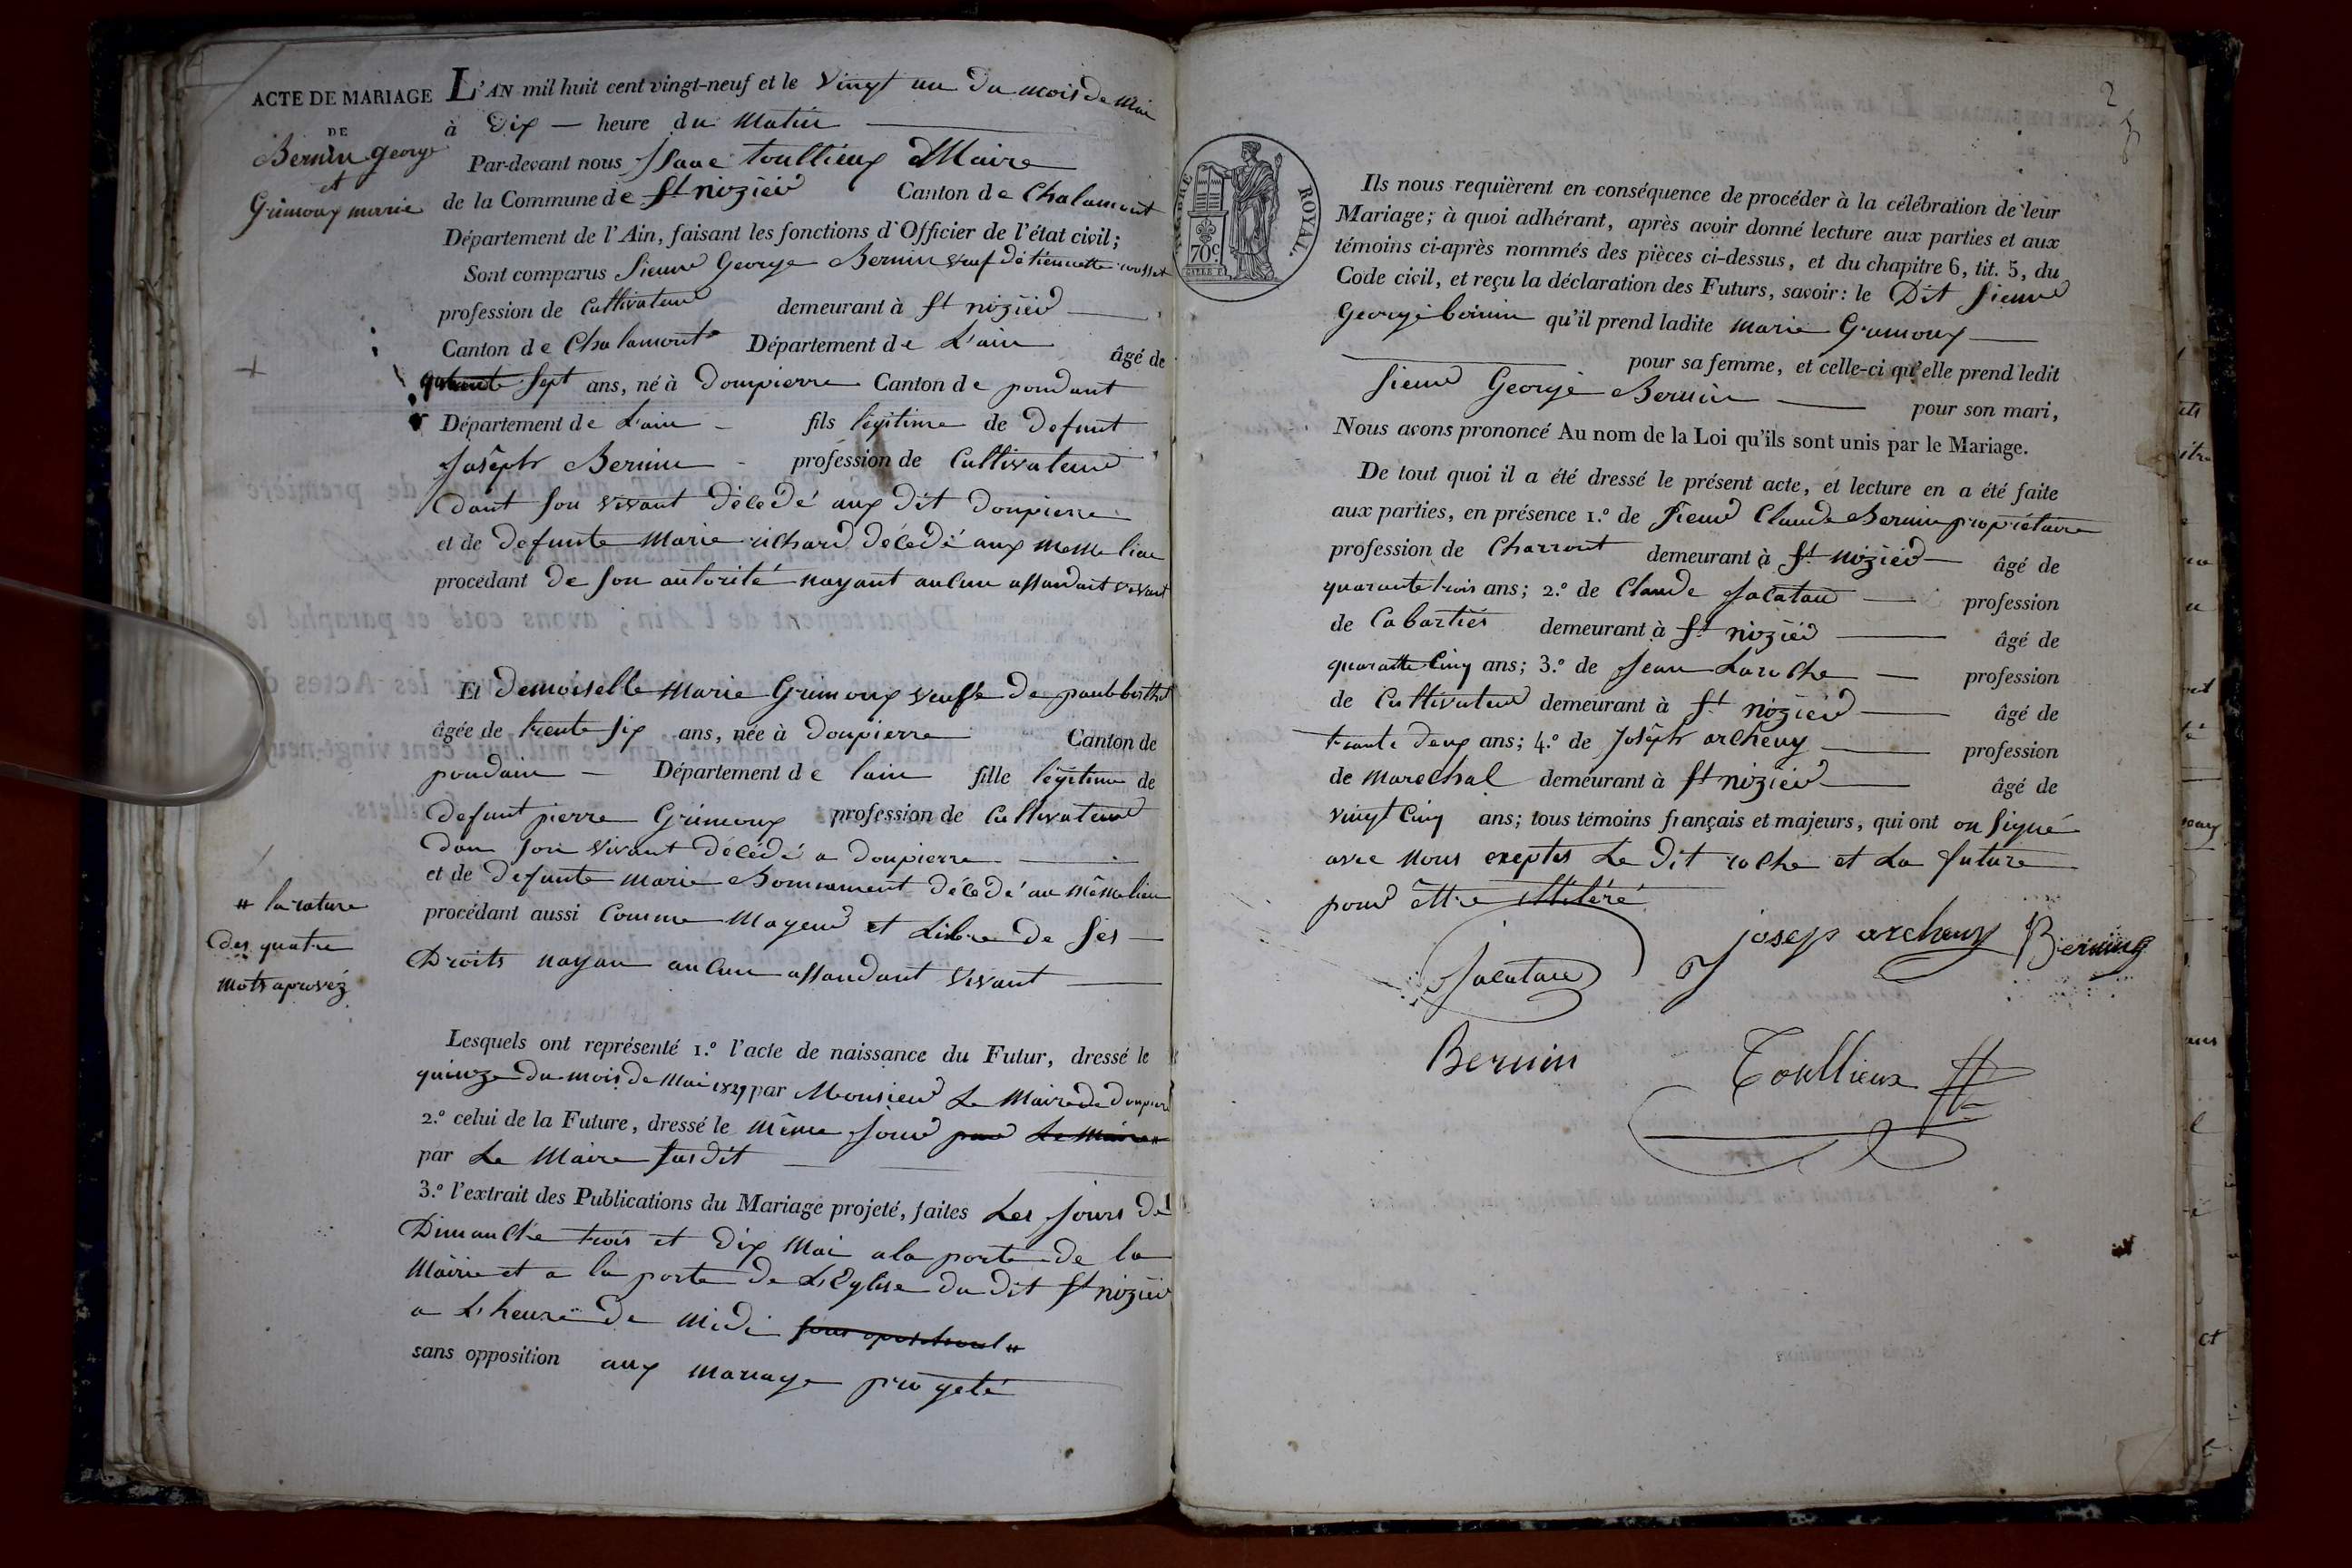 ACTE DE MARIAGE
DE
Bernin george
et
Grimoux marie
L'AN mil huit cent vingt-neuf et le vingt un du mois de Mai
à Dix — heure du Matin
Par-devant nous Isaac toullieux Maire
de la Commune de St nizier Canton de Chalamont
Département de l'Ain, faisant les fonctions d'Officier de l'état civil;
Sont comparus Sieur George Bernin veuf de
profession de Cultivateur demeurant à St nizier
Canton de Chalamont Département de L'ain âgé de
Sept ans, né à Dompierre Canton de pondant
Département de L'ain fils légitime de defunt
Joseph Bernin profession de Cultivateur
dant son vivant décédé aux dit Dompierre
et de defunte Marie richard décédé aux meme lieu
procédant de son autorité nayant aucun assandant vivant
Et demoiselle Marie Grimoux veufve de paul berthet
âgée de trente six ans, née à Dompierre Canton de
pondain — Département de lain fille légitime de
defunt pierre Grimoux profession de Cultivateur
dan son vivant décédé a Dompierre
et de defunte marie décédé au même lieu
procédant aussi Comme Mayeur et Libre de ses
Droits nayan aucun assandant vivant
# la rature
des quatre
mots aprovéz
Lesquels ont représenté 1.º l'acte de naissance du Futur, dressé le
quinze du mois de Mai 1829 par Monsieur Le Maire de Dompierre
2.º celui de la Future, dressé le même jour par Le Maire #
par Le Maire susdit
3.º l'extrait des Publications du Mariage projeté, faites Les jours de
Dimanche trois et dix Mai a la porte de la
Mairie et a la porte de L'Eglise du dit St nizier
a L'heure de Midi sans oposition #
sans opposition aux mariage progeté
2
ROYAL.
70c
Ils nous requièrent en conséquence de procéder à la célébration de leur
Mariage; à quoi adhérant, après avoir donné lecture aux parties et aux
témoins ci-après nommés des pièces ci-dessus, et du chapitre 6, tit. 5, du
Code civil, et reçu la déclaration des Futurs, savoir: le Dit Sieur
George bernin qu'il prend ladite marie Grimoux
pour sa femme, et celle-ci qu'elle prend ledit
Sieur George Bernin — pour son mari,
Nous avons prononcé Au nom de la Loi qu'ils sont unis par le Mariage.
De tout quoi il a été dressé le présent acte, et lecture en a été faite
aux parties, en présence 1.º de Sieur Claude Bernin propriétaire
profession de Charront demeurant à St nizier — âgé de
quarante trois ans; 2.º de Claude Jacatau — profession
de Cabartier demeurant à St nizier — âgé de
quaratte Cinq ans; 3.º de Jean Laroche — profession
de Cultivateur demeurant à St nizier — âgé de
trante deux ans; 4.º de Joseph archeny — profession
de Marechal demeurant à St nizier — âgé de
vingt Cinq ans; tous témoins français et majeurs, qui ont on signé
avec Nous exeptes Le dit roche et La future
pour être illitéré
Jacatau
josep archeny
Bernin
Bernin
Toullieux